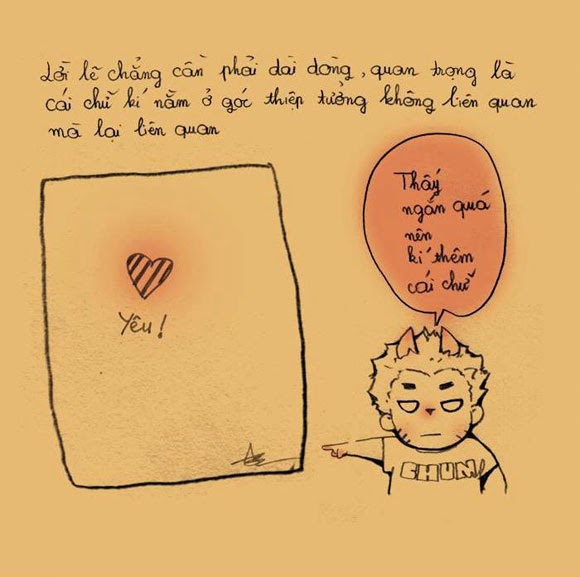 Lời lẽ chẳng cần phải dài dòng, quan trọng là
cái chữ kí nằm ở góc thiệp tưởng không liên quan
mà lại liên quan
Thấy
ngắn quá
nên
kí thêm
cái chữ
Yêu!
CHUM